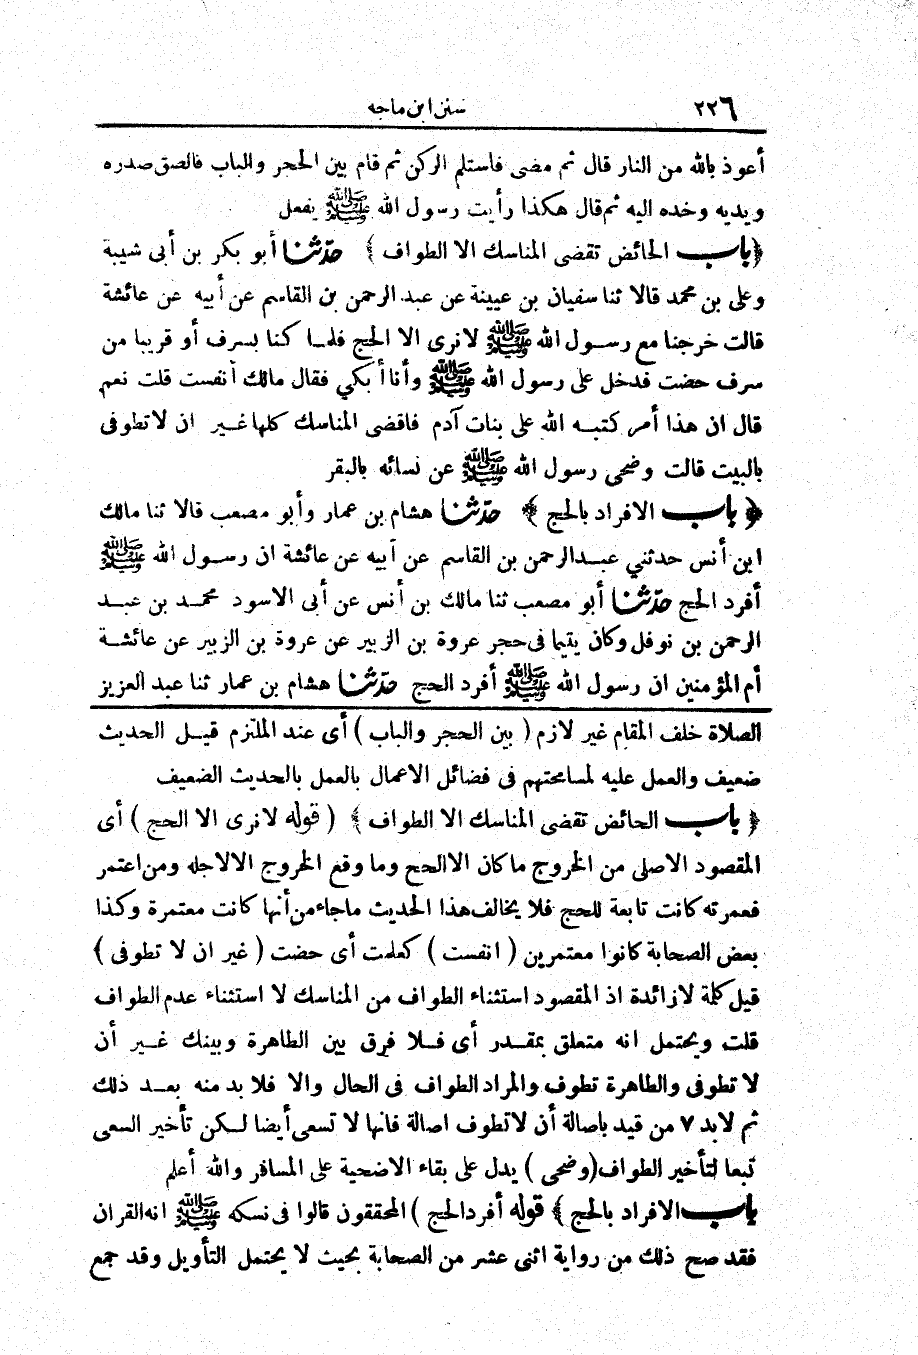 ٢٢٦ سنن ابن ماجه
أعوذ بالله من النار قال ثم مضى فاستلم الركن ثم قام بين الحجر والباب فالصق صدره
ويديه وخده اليه ثم قال هكذا رأيت رسول الله ﷺ يفعل
﴿ باب الحائض تقضى المناسك الا الطواف ﴾ حدّثنا أبو بكر بن أبى شيبة
وعلى بن محمد قالا ثنا سفيان بن عيينة عن عبد الرحمن بن القاسم عن أبيه عن عائشة
قالت خرجنا مع رسول الله ﷺ لا نرى الا الحج فلما كنا بسرف أو قريبا من
سرف حضت فدخل على رسول الله ﷺ وأنا أبكي فقال مالك أنفست قلت نعم
قال ان هذا أمر كتبه الله على بنات آدم فاقضى المناسك كلها غير ان لا تطوفى
بالبيت قالت وضحى رسول الله ﷺ عن نسائه بالبقر
﴿ باب الافراد بالحج ﴾ حدّثنا هشام بن عمار وأبو مصعب قالا ثنا مالك
ابن أنس حدثني عبد الرحمن بن القاسم عن أبيه عن عائشة ان رسول الله ﷺ
أفرد الحج حدّثنا أبو مصعب ثنا مالك بن أنس عن أبى الاسود محمد بن عبد
الرحمن بن نوفل وكان يتيما فى حجر عروة بن الزبير عن عروة بن الزبير عن عائشة
أم المؤمنين ان رسول الله ﷺ أفرد الحج حدّثنا هشام بن عمار ثنا عبد العزيز
الصلاة خلف المقام غير لازم ( بين الحجر والباب ) أى عند الملتزم قيل الحديث
ضعيف والعمل عليه لمسامحتهم فى فضائل الاعمال بالعمل بالحديث الضعيف
﴿ باب الحائض تقضى المناسك الا الطواف ﴾ ( قوله لا نرى الا الحج ) أى
المقصود الاصلى من الخروج ما كان الا الحج وما وقع الخروج الا لاجله ومن اعتمر
فعمرته كانت تابعة للحج فلا يخالف هذا الحديث ما جاء من أنها كانت معتمرة وكذا
بعض الصحابة كانوا معتمرين ( انفست ) كعلمت أى حضت ( غير ان لا تطوفى )
قيل كلمة لا زائدة اذ المقصود استثناء الطواف من المناسك لا استثناء عدم الطواف
قلت ويحتمل انه متعلق بمقدر أى فلا فرق بين الطاهرة وبينك غير أن
لا تطوفى والطاهرة تطوف والمراد الطواف فى الحال والا فلا بد منه بعد ذلك
ثم لابد ٧ من قيد باصالة أن لا تطوف اصالة فانها لا تسعى أيضا لكن تأخير السعى
تبعا لتأخير الطواف (وضحى ) يدل على بقاء الاضحية على المسافر والله أعلم
باب الافراد بالحج ﴾ قوله أفرد الحج ) المحققون قالوا فى نسكه ﷺ انه القران
فقد صح ذلك من رواية اثنى عشر من الصحابة بحيث لا يحتمل التأويل وقد جمع